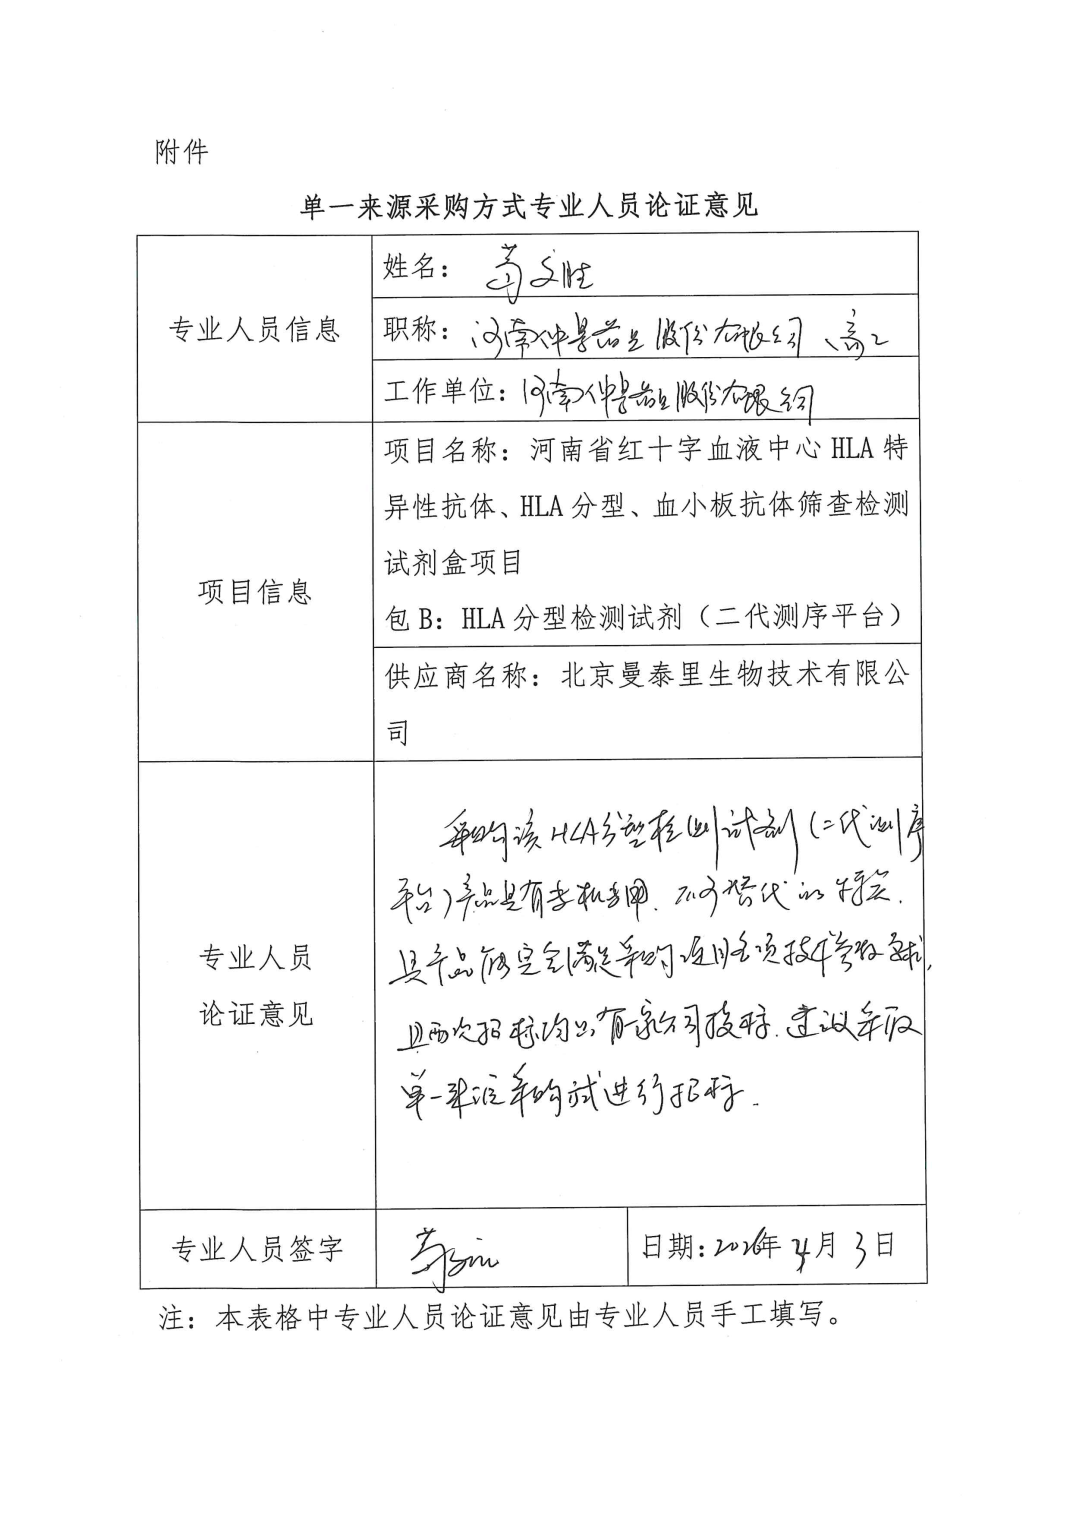 附件
单一来源采购方式专业人员论证意见
专业人员信息
姓名：文胜
职称：河南仲景药业股份有限公司 高工
工作单位：河南仲景药业股份有限公司
项目信息
项目名称：河南省红十字血液中心 HLA 特
异性抗体、HLA 分型、血小板抗体筛查检测
试剂盒项目
包 B：HLA 分型检测试剂（二代测序平台）
供应商名称：北京曼泰里生物技术有限公
司
专业人员
论证意见
采购该HLA分型检测试剂（二代测序
平台）产品具有专机专用、不可替代的特点，
且产品能完全满足采购项目各项技术参数要求，
且两次招标均只有一家公司投标，建议采取
单一来源采购方式进行招标。
专业人员签字
日期：2026年4月3日
注：本表格中专业人员论证意见由专业人员手工填写。